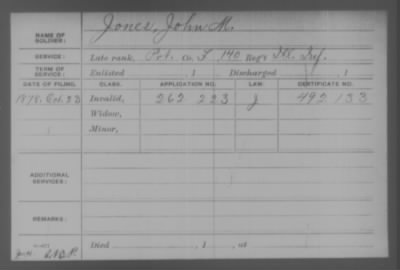 NAME OF SOLDIER: Jones, John M.
SERVICE: Late rank, Pvt. Co. F, 140 Reg't Ill. Inf.
TERM OF SERVICE: Enlisted , 1 Discharged , 1
DATE OF FILING. CLASS. APPLICATION NO. LAW. CERTIFICATE NO.
1878. Oct. 23 Invalid, 262 223 J 492 133
Widow,
Minor,
ADDITIONAL SERVICES:
REMARKS:
Died , 1 , at